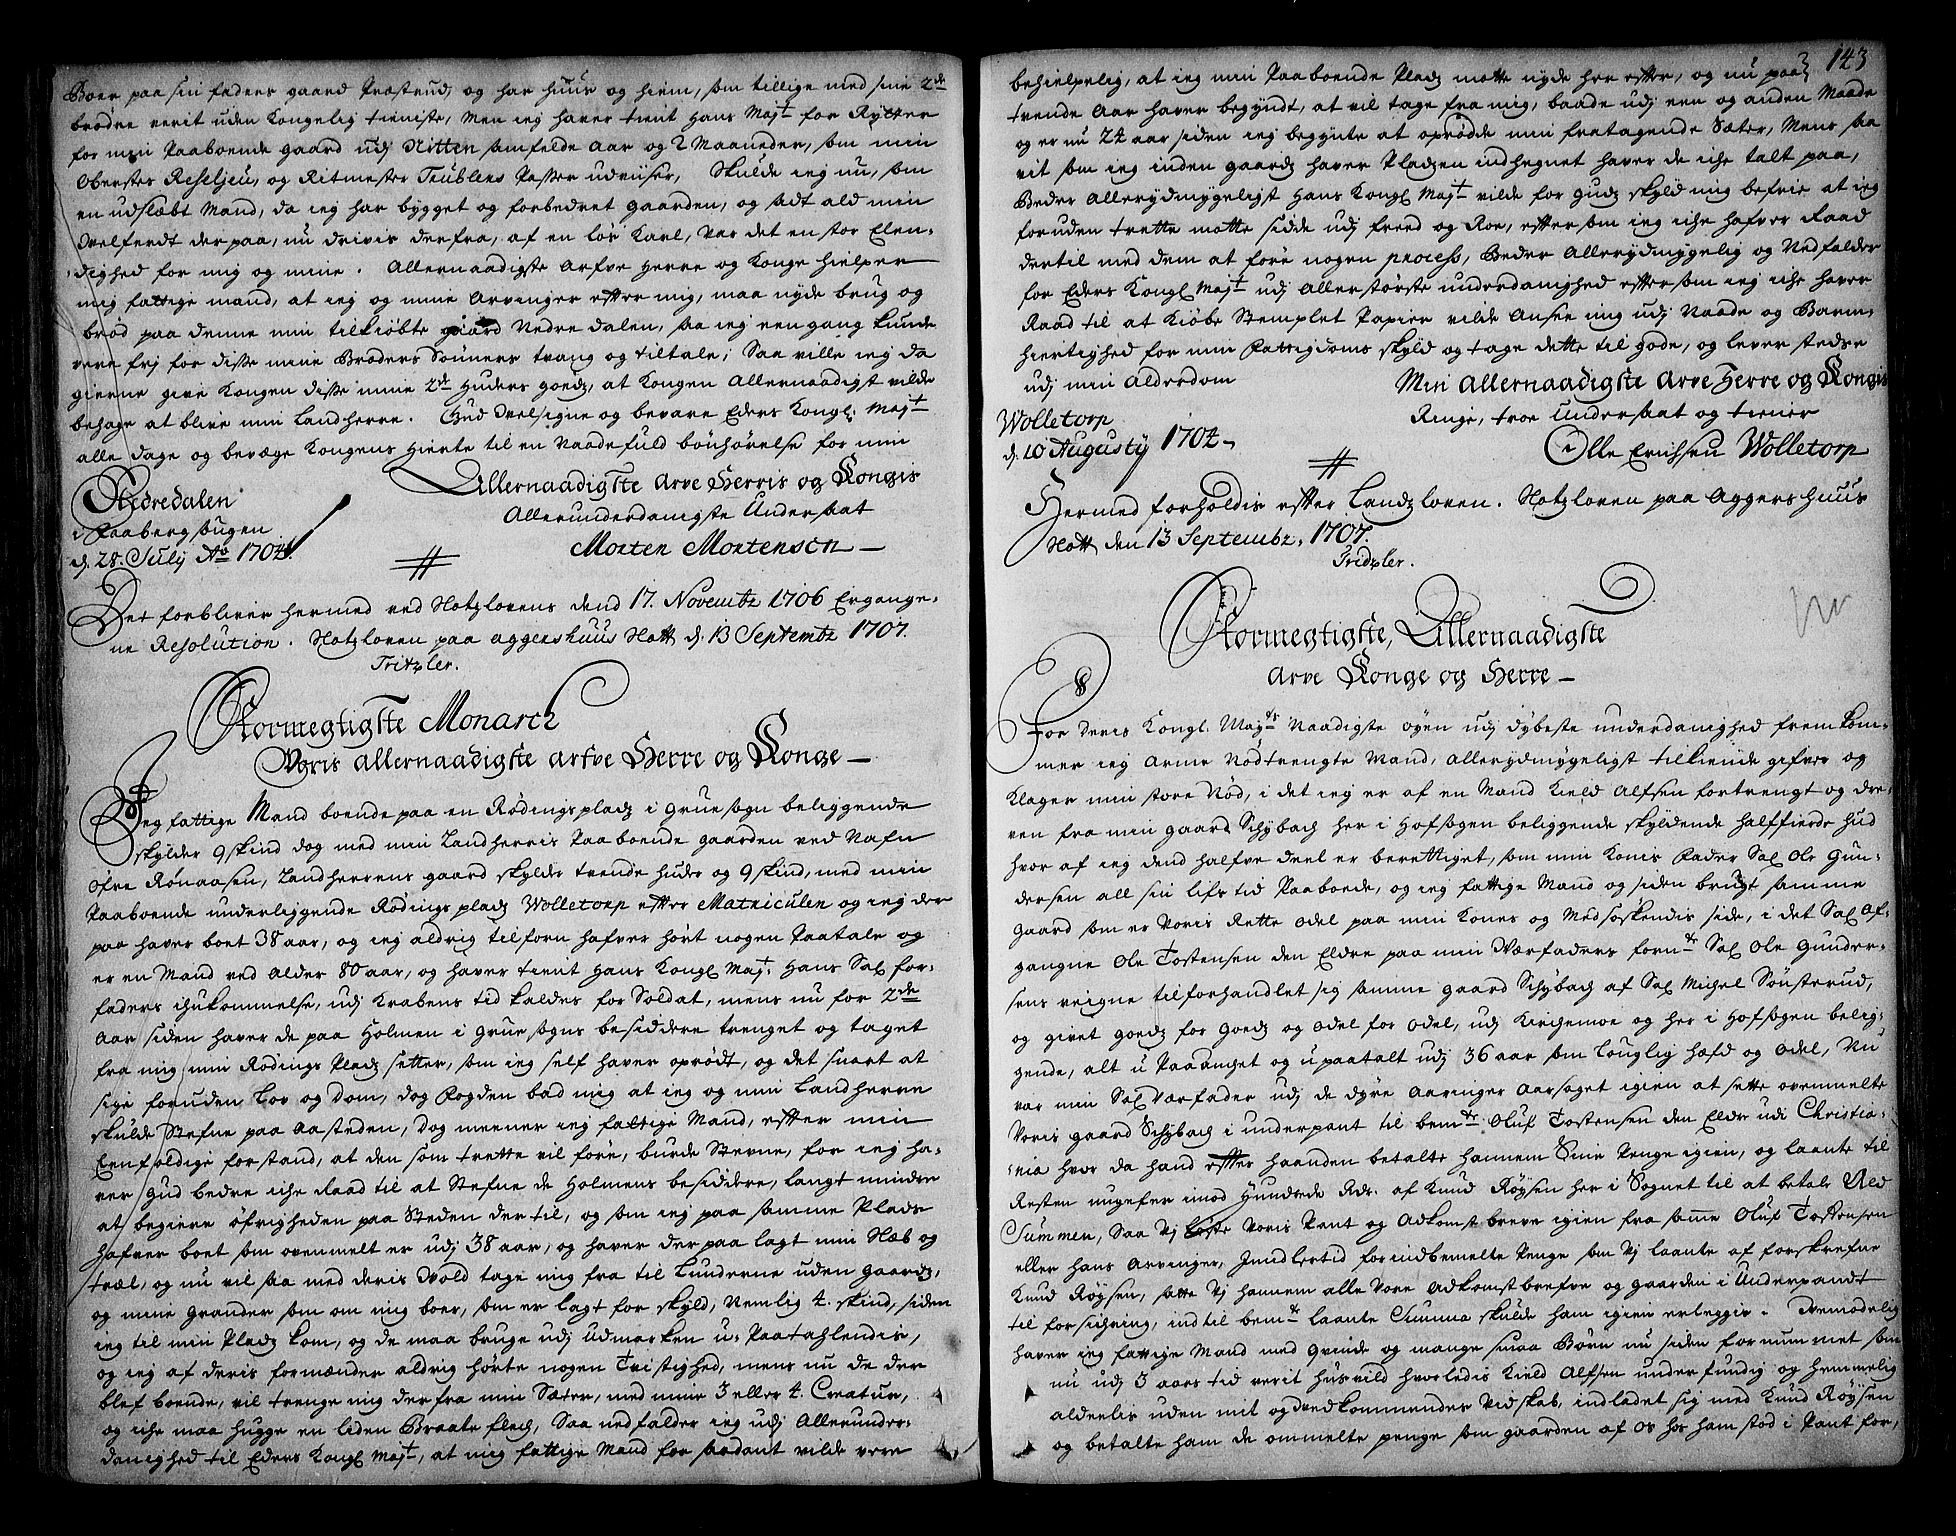 Boer paa sin faders gaard Præstrud, og har huus og hiem, som tillige med sine 2de
brødre verit uden Kongelig tieniste, Men ieg haver tient Hans Majt for Rytter
for min Paaboende gaard udj Nitten samfelde Aar og 2 Maaneder, som min
Oberster Reseljeu, og Ritmester Teublens Passer udviiser, Skulde ieg nu, som
en udslæbt Mand, da ieg har bygget og forbedret gaarden, og sadt ald min
Velferdt derpaa, nu drivis derfra, af en løs Karl, var det en stor Elen-
dighed for mig og mine. Allernaadigste Arfve Herre og Konge hielper
mig fattige mand, at ieg og mine Arvinger efter mig, maa nyde brug og
brød paa denne min tilkiøbte gaard Nedre Dalen, saa ieg eengang kunde
være frj for disse mine Brøders Sønners tvang og tiltale; Saa ville ieg da
gierne give Kongen disse mine 2de Huders goeds, at Kongen Allernaadigst vilde
behage at blive min Landherre. Gud Velsigne og bevare Eders Kongl. Majt
alle dage og bevæge Kongens hierte til en Naadefuld bønhørelse for min
Allernaadigste Arve Herris og Kongis
Nedredalen
Allerunderdanigste Undersaat
i Faaberg Sugen
d. 28. July Ao 1704.
Morten Mortensen
Det forbliver hermed ved Slotzlovens dend 17. Novembr 1706 Ergange-
ne Resolution. Slotzloven paa Aggershuus Slott d. 13 Septembr 1707.
Tritzler.
Stormegtigste Monarch
Voris allernaadigste arfve Herre og Konge
Jeg fattige Mand boende paa en Rødningsplads i Grue sogn beliggende
skylder 9 skind dog med min Landherris Paaboende gaarden ved Nafn
Øfre Rønaasen, Landherrens gaard skylder tvende huder og 9 skind, med min
Paaboende underliggende Rødnings plads Wolletorp efter Matriculen og ieg der
paa haver boet 38 aar, og ieg aldrig tilforn hafver hørt nogen Paatale og
er en Mand ved alder 80 aar, og haver tient Hans Kongl Majt. Hans Sal for-
faders ihukommelse, udj Krabens tid kaldes for Soldat, mens nu for 2de
Aar siden haver de paa Holmen i Grue sogns besiddere trenget og taget
fra mig min Rødnings Plads setter, som ieg self haver oprødt, og det snart at
sige foruden Lov og Dom, dog Fogden bad mig at ieg og min Landherre
skulde Stefne paa Aasteden, dog meener ieg fattige Mand, efter min
Eenfoldige forstand, at den som trette vil føre, burde Stevne, for ieg ha-
ver Gud bedre iche Raad til at Stefne de Holmens besiddere, langt mindre
at begiere øfrigheden paa Steden der til, og som ieg paa samme Plads
hafver boet som ovenmelt er udj 38 aar, og haver der paa lagt min Slæb og
træl, og nu vil saa med deris Vold tage mig fra til Lunderne uden gaards,
og mine Grander som om mig boer, som er lagt for skyld, Nemlig 4. skind, siden
ieg til min Plads kom, og de maa bruge udj udmarken u-Paatahlendis,
og ieg af deris formænder aldrig hørte nogen Tvistighed, mens nu de der
blef boende, vil trenge mig derfra min Sæter, med mine 3 eller 4. Creatur,
og iche maa hugge en liden Braate flech, Saa nedfalder ieg udj Allerunder-
danighed til Eders Kongl Majt, at mig fattige Mand for saadant vilde være
143
behielpelig, at ieg min Paaboende Plads motte nyde her efter, og nu paa
tvende Aar haver begyndt, at vil tage fra mig, baade udj een og anden Maade
og er nu 24 aar siden ieg begynte at oprødde min fratagende Sæter, Mens saa
vit som ieg inden gaards haver Pladsen indhegnet haver de iche talt paa,
Beder Allerydmygeligst Hans Kongl Majt vilde for Guds skyld mig befrie at ieg
foruden trette motte sidde udj freed og Roe, eftersom ieg iche hafver Raad
dertil med dem at føre nogen process, Beder Allerydmygelig og Nedfalder
for Eders Kongl Majt udj Allerstørste underdanighed eftersom ieg iche haver
Raad til at Kiøbe Stemplet Papier vilde Ansee mig udj Naade og Barm-
hiertighed for min Fattigdoms skyld og tage dette til gode, og lever stedse
udj min Alderdom
Min Allernaadigste Arve Herre og Kongis
Wolletorp
Ringe, troe Undersaat og tiener
d. 10 Augusty 1704
Olle Erichsen Wolletorp
Hermed forholdis efter Landzloven. Slotzloven paa Aggershuus
Slott den 13 Septembr. 1707.
Tridzler.
Stormegtigste, Allernaadigste
Arve Konge og Herre
For Deris Kongl. Mayts Naadigste øyen udj dybeste underdanighed fremkom-
mer ieg Arme Nødtrengte Mand, allerydmygeligst tilkiende gifver og
Klager min store Nød, i det ieg er af en Mand Kield Alfsen fortrengt og dre-
ven fra min gaard Schybach her i Hofsogen beliggende skyldende halffierde hud
hvor af ieg dend halfve deel er berettiget, som min Konis Fader Sal Ole Gun-
dersen all sin lifs tid Paaboede, og ieg fattige Mand og siden brugt samme
Gaard som er Voris Rette Odel paa min Kones og Medsøskendis side, i det Sal Af-
gangne Ole Tostensen den Eldre paa min Værfaders fornte Sal Ole Gunder-
sens veigne tilforhandlet sig samme gaard Schybach af Sal Michel Sønsterud,
og givet goeds for Goeds og Odel for Odel, udj Kirchemoe og her i Hofsogen belig-
gende, alt u Paaanchet og upaatalt udj 36 aar som Louglig hæfd og Odel, Nu
var min Sal Værfader udj de dyre Aaringer Aarsaget igien at sette ovenmelte
Voris gaard Schybach i underpant til bemte Oluf Tostensen den Eldre udi Christia-
nia hvor da hand efter haanden betalte hannem Sine Penge igien, og laante til
Resten ungefer imod Hundrede Rdr. af Knud Røysen her i Sognet til at betale Ald
Summen, Saa Vj løste Voris Pant og Adkomst breve igien fra samme Oluf Tostensen
eller hans Arvinger, Imidlertid forindbemelte Penge som Vj laante af forskrefne
Knud Røysen, satte Vj hannem alle Vore Adkomstbrefve og gaarden i Underpandt
til forsichring, indtil bemte laante Summa skulde ham igien erleggis. Ivemodelig
haver ieg fattige Mand med Qvinde og mange smaa Børn nu siden fornummet som
nu udj 3 aars tid verit husvild hvorledis Kield Alfsen underfundig og hemmelig
aldeelis uden mit og vedkommendes Vidskab, indladet sig med Knud Røysen
og betalte ham de ommelte penge som gaarden af os hos ham stod i Pant for,